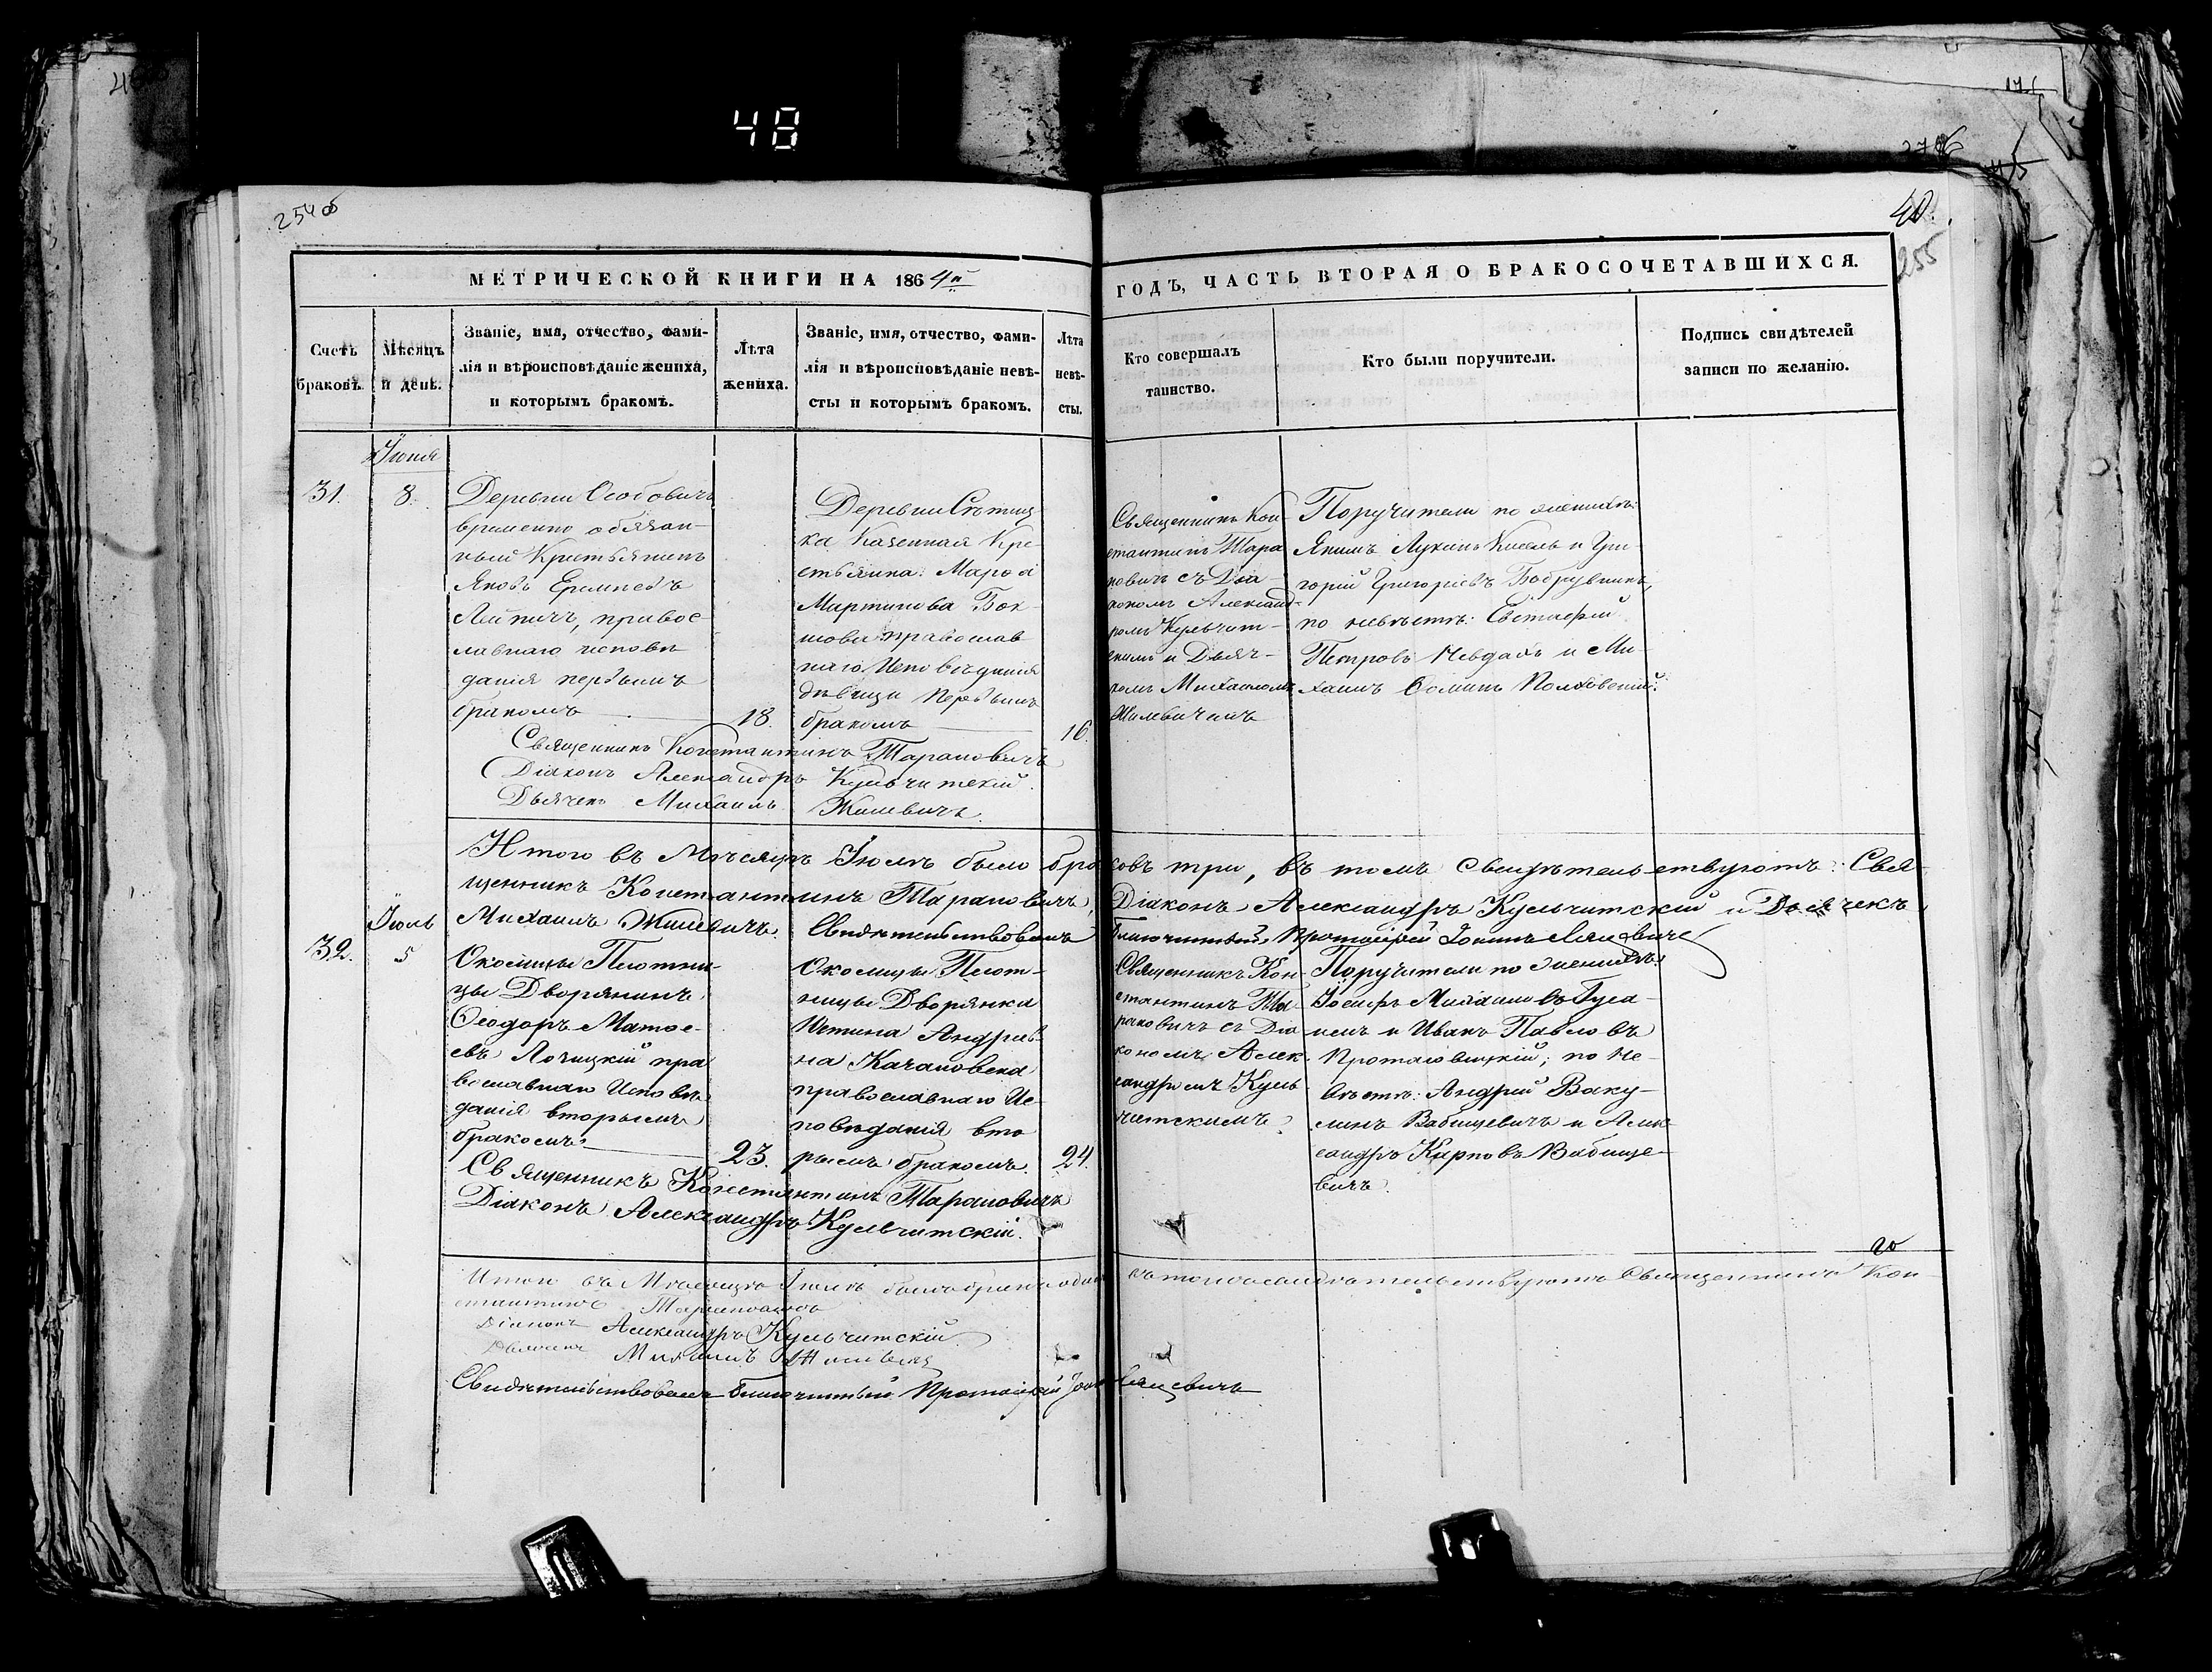 48
254 об
40.
255
МЕТРИЧЕСКОЙ КНИГИ НА 1864й
ГОДЪ, ЧАСТЬ ВТОРАЯ О БРАКОСОЧЕТАВШИХСЯ.
Счетъ
браковъ.
Мѣсяцъ
и день.
Званіе, имя, отчество, фами-
лія и вѣроисповѣданіе жениха,
и которымъ бракомъ.
Лѣта
жениха.
Званіе, имя, отчество, фами-
лія и вѣроисповѣданіе невѣ-
сты и которымъ бракомъ.
Лѣта
невѣ-
сты.
Кто совершалъ
таинство.
Кто были поручители.
Подпись свидѣтелей
записи по желанію.
31.
8.
Деревни Особовичъ
временно обязан-
ный Крестьянинъ
Яковъ
правос
лавнаго исповѣ
данія первымъ
бракомъ
18.
Деревни
ка Казенная Кре
стьянка
Мартинова
православ
наго Исповѣданія
дѣвица первымъ
бракомъ
16.
Священникъ Кон-
стантинъ Тара
новичъ съ Діа-
кономъ Александ-
ромъ Кульчит-
скимъ и Дьяч-
комъ Михаиломъ
Жилевичемъ
Поручители по женихѣ:
Якимъ Лукинъ Кисель и Гри-
горій Григоріевъ
по невѣстѣ: Евстафій
Петровъ и Ми-
хаилъ Ѳоминъ
Священникъ Константинъ Тарановичъ
Діаконъ Александръ Кульчитскій.
Дьячекъ Михаилъ Жилевичъ.
Итого въ Мѣсяцѣ было браковъ три, въ томъ свидѣтельствуютъ: Свя-
щенникъ Константинъ Тарановичъ, Діаконъ Александръ Кульчитскій и Дьячекъ
Михаилъ Жилевичъ. Свидѣтельствовалъ Благочинный Протоіерей
Іюль
32.
5
Околицы Плотни-
цы Дворянинъ
Ѳеодоръ Матѳе-
евъ Лочицкій пра
вославнаго Исповѣ
данія вторымъ
бракомъ
23.
Околицы Плот-
ницы Дворянка
Устина Андреев-
на Качановска
православнаго Ис-
повѣданія вто
рымъ бракомъ.
24.
Священникъ Кон-
стантинъ Та-
рановичъ съ Діа
кономъ Алек
сандромъ Куль
читскимъ.
Поручители по женихѣ:
Іосифъ Михаиловъ
и Иванъ Павловъ
Протасовицкій; по не-
вѣстѣ: Андрей Ваку-
линъ Вабищевичъ и Алек
сандръ Карповъ Вабище-
вичъ.
Священникъ Константинъ Тарановичъ
Діаконъ Александръ Кульчитскій.
Итого въ Мѣсяцѣ Іюлѣ было бракъ одинъ въ томъ свидѣтельствуютъ Священникъ Кон-
стантинъ Тарановичъ
Діаконъ Александръ Кульчитскій
Дьячекъ Михаилъ Жилевичъ
Свидѣтельствовалъ Благочинный Протоіерей